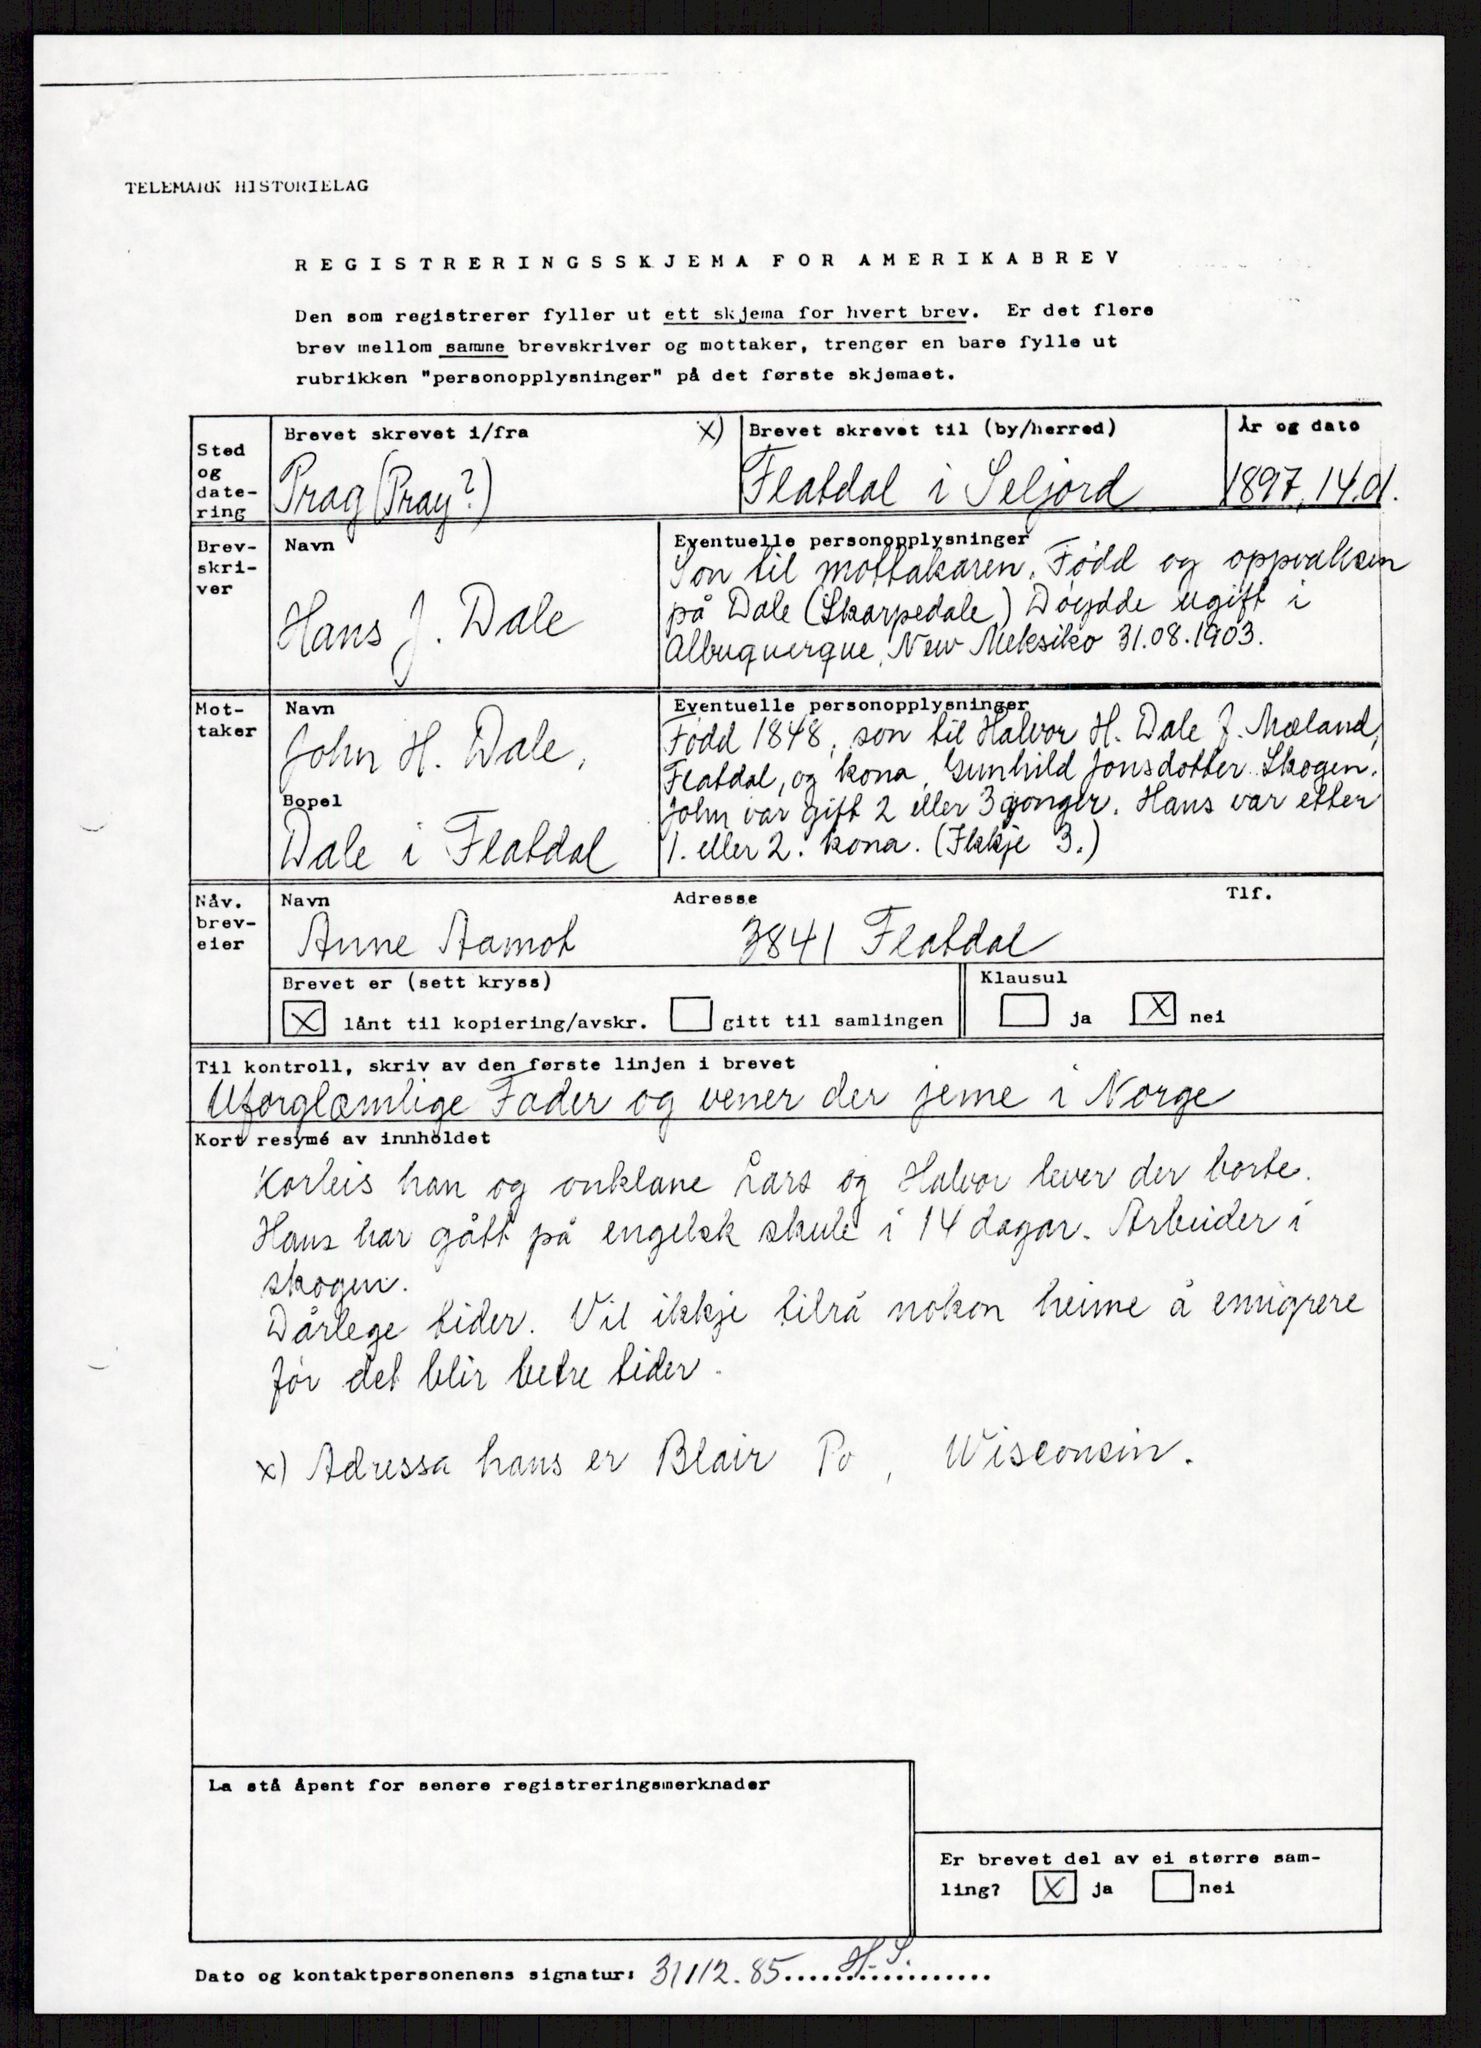 TELEMARK HISTORIELAG
REGISTRERINGSSKJEMA FOR AMERIKABREV
Den som registrerer fyller ut ett skjema for hvert brev. Er det flere
brev mellom samme brevskriver og mottaker, trenger en bare fylle ut
rubrikken "personopplysninger" på det første skjemaet.
Sted og date-ring
Brevet skrevet i/fra x)
Prag (Pray?)
Brevet skrevet til (by/herred)
Flatdal i Seljord
År og dato
1897, 14.01.
Brev-
skri-
ver
Navn
Hans J. Dale
Eventuelle personopplysninger
Son til mottakaren. Fødd og oppvaksen
på Dale (Skarpedale) Døydde ugift i
Albuquerque, New Meksiko 31.08.1903.
Mot-
taker
Navn
John H. Dale,
Bopel
Dale i Flatdal
Eventuelle personopplysninger
Fødd 1848, son til Halvor H. Dale f. Mæland,
Flatdal, og kona, Gunhild Jonsdotter Skogen.
John var gift 2 eller 3 gonger. Hans var etter
1. eller 2. kona. (Ikkje 3.)
Nåv.
brev-
eier
Navn
Anne Aamot
Adresse
3841 Flatdal
Tlf.
Brevet er (sett kryss)
X lånt til kopiering/avskr. gitt til samlingen
Klausul
ja X nei
Til kontroll, skriv av den første linjen i brevet
Uforglæmlige Fader og vener der jeme i Norge
Kort resymé av innholdet
Korleis han og onklane Lars og Halvor lever der borte.
Hans har gått på engelsk skule i 14 dagar. Arbeider i
skogen.
Dårlege tider. Vil ikkje tilrå nokon heime å emigrere
før det blir betre tider.
x) Adressa hans er Blair Po, Wisconsin.
La stå åpent for senere registreringsmerknader
Er brevet del av ei større sam-
ling? X ja nei
Dato og kontaktpersonenens signatur: 31/12.85 H.S.